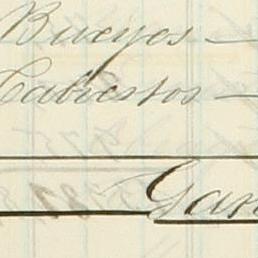 Bueyes —
Cabestros —
Gan